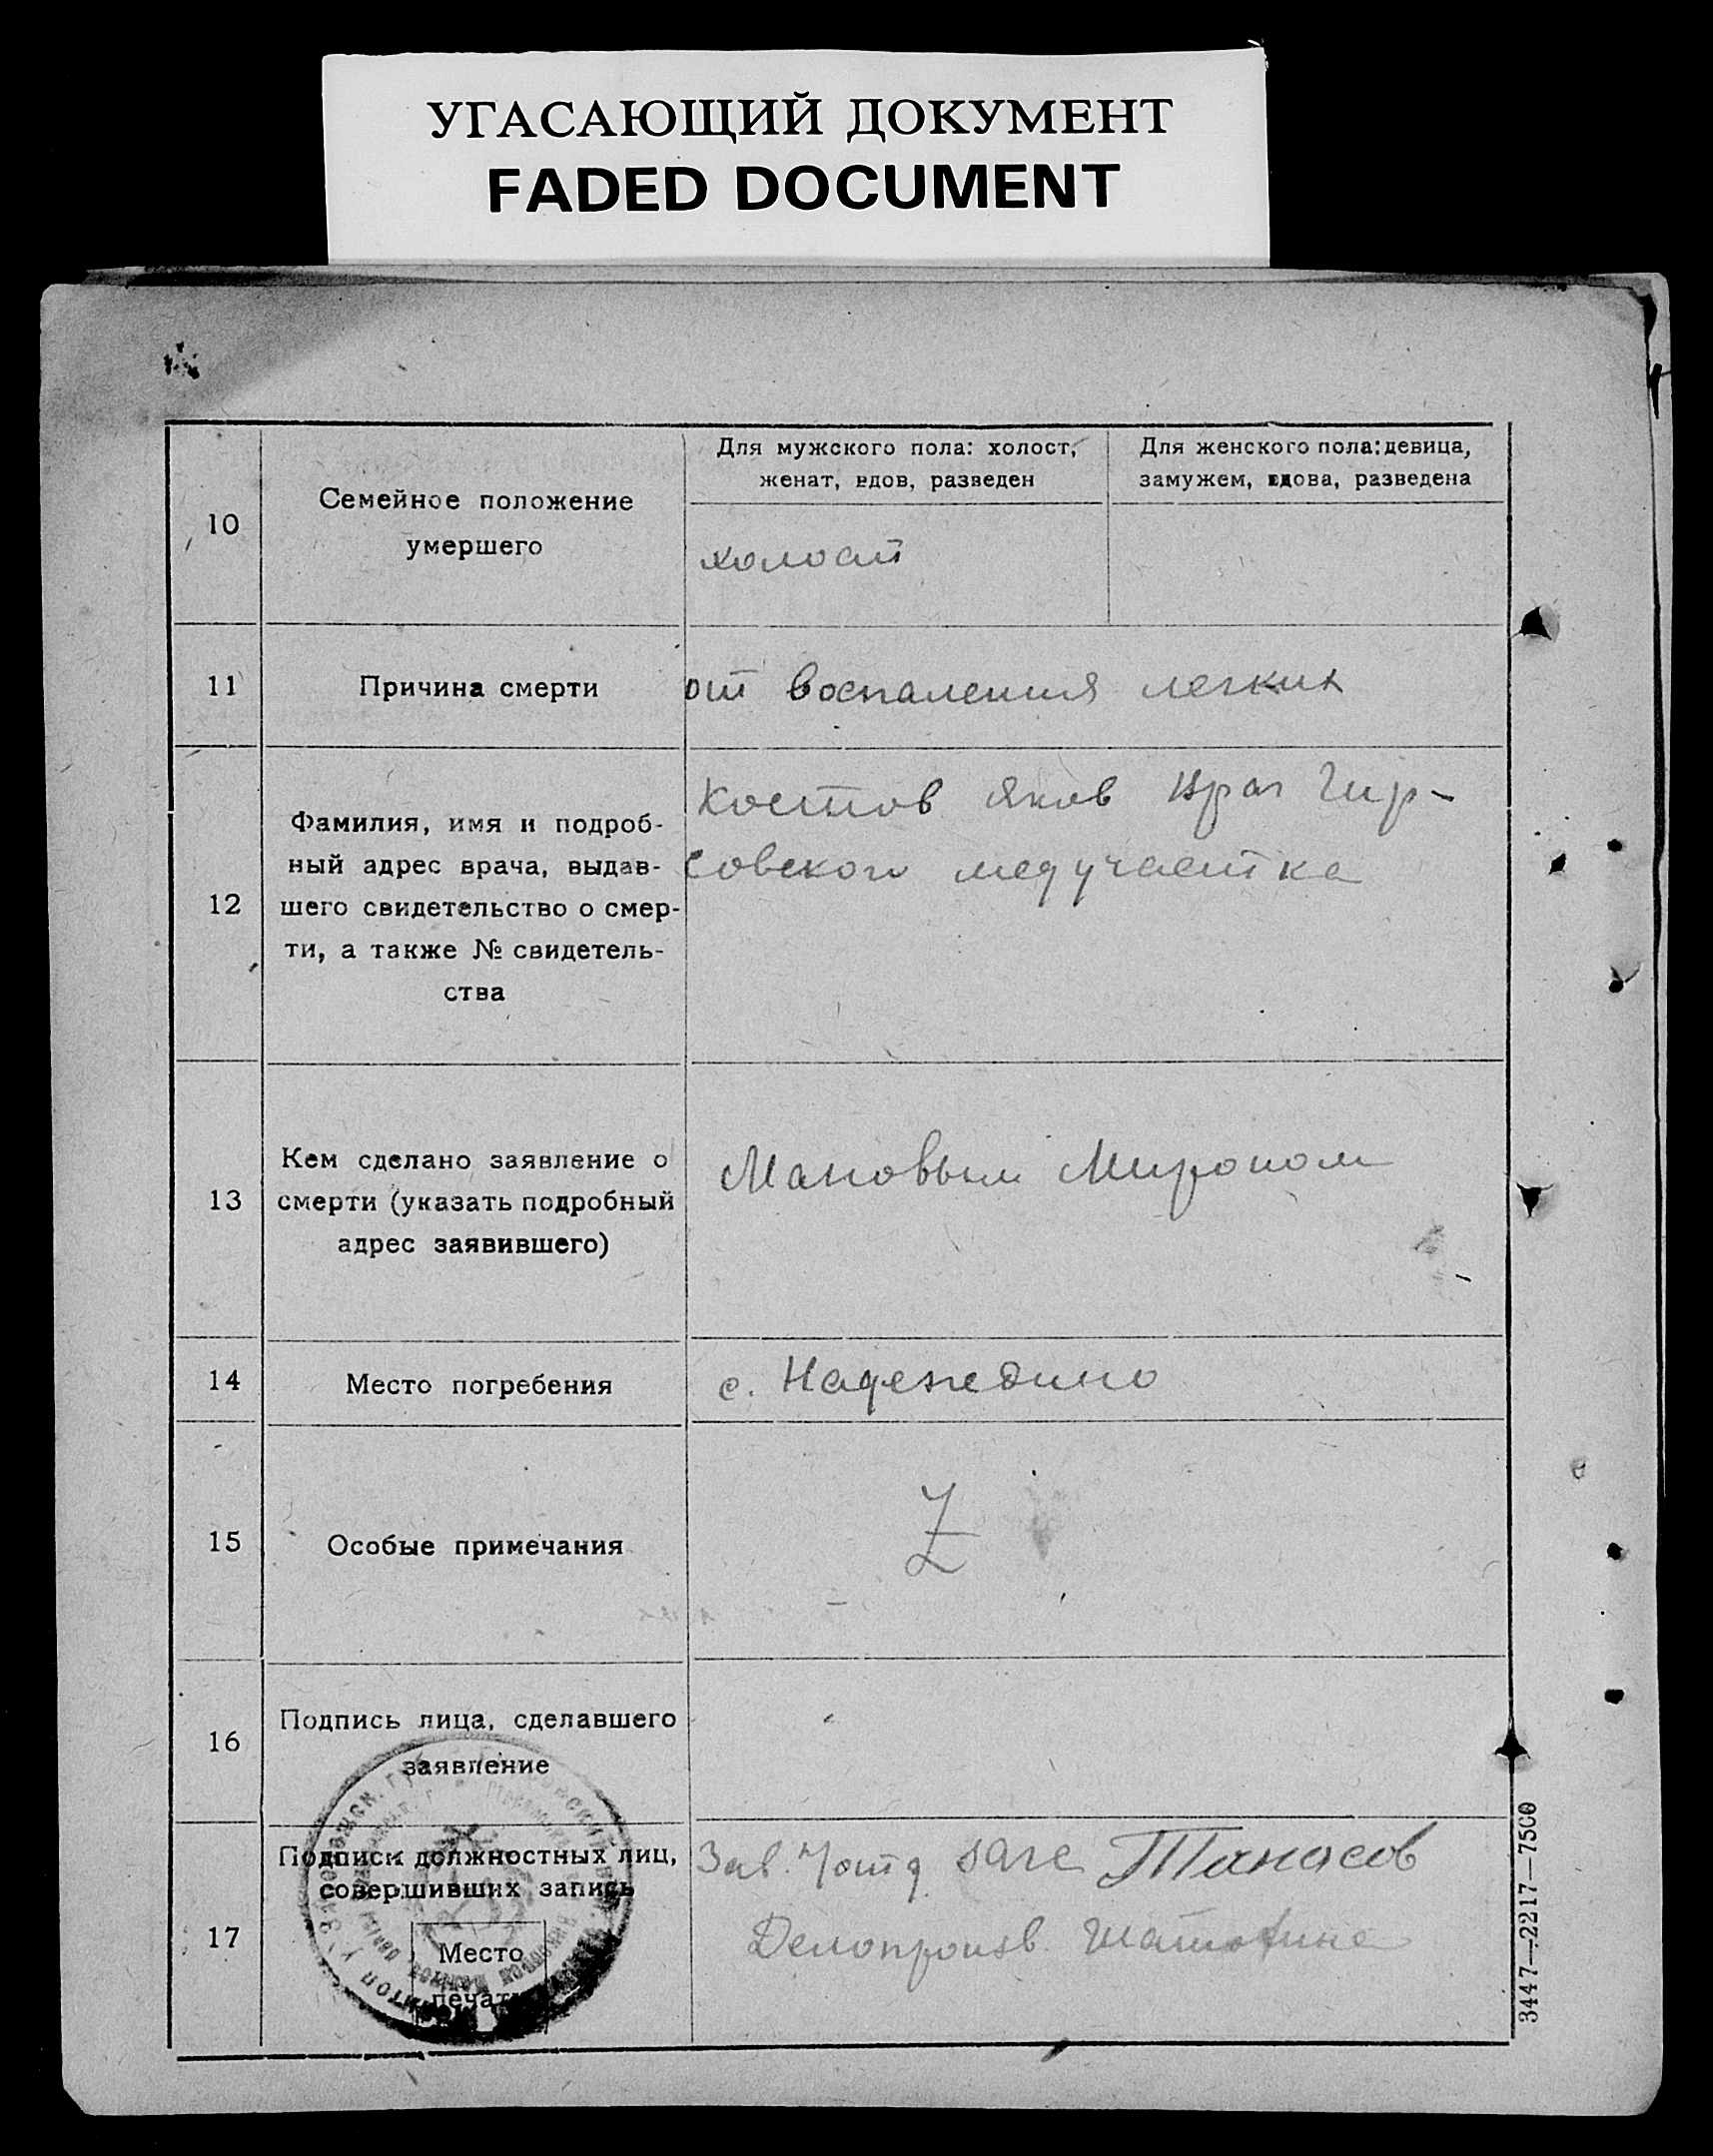 УГАСАЮЩИЙ ДОКУМЕНТ
FADED DOCUMENT
10
Семейное положение
умершего
Для мужского пола: холост,
женат, вдов, разведен
Для женского пола: девица,
замужем, вдова, разведена
холост
11
Причина смерти
от воспаления легких
12
Фамилия, имя и подроб-
ный адрес врача, выдав-
шего свидетельство о смер-
ти, а также № свидетель-
ства
Костов Яков Врач Гир-
совского медучастка
13
Кем сделано заявление о
смерти (указать подробный
адрес заявившего)
Мановым Мироном
14
Место погребения
с. Надеждино
15
Особые примечания
Z
16
Подпись лица, сделавшего
заявление
17
Подписи должностных лиц,
совершивших запись
Место
печати
Зав. загс Танасов
Делопроизв.
3447—2217—7500